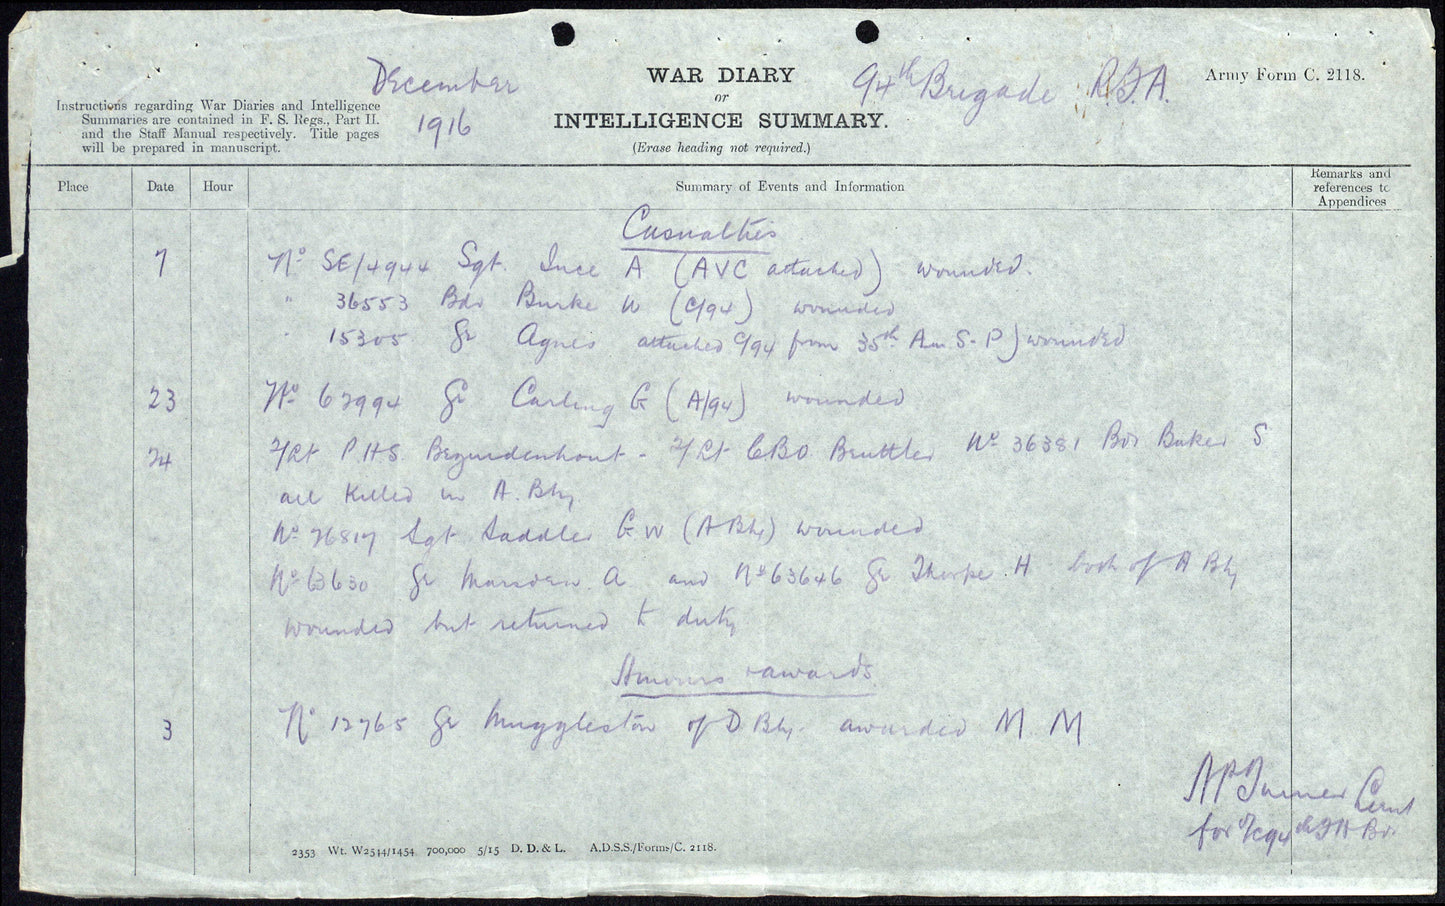 December
1916
WAR DIARY
or
INTELLIGENCE SUMMARY.
(Erase heading not required.)
94th Brigade R.F.A.
Army Form C. 2118.
Instructions regarding War Diaries and Intelligence
Summaries are contained in F. S. Regs., Part II.
and the Staff Manual respectively. Title pages
will be prepared in manuscript.
Place Date Hour Summary of Events and Information Remarks and
references to
Appendices
Casualties
7 No SE/4944 Sgt. Ince A (AVC attached) wounded.
" 36553 Bdr Burke W (C/94) wounded
" 15305 Gr Agnes attached C/94 from 35th Am S-P) wounded
23 No 67994 Gr Carling G (A/94) wounded
24 2/Lt P.H.S. Bezuidenhout - 2/Lt C.B.O. Bruttler No 36381 Bdr Baker S
all killed in A. Bty
No 76817 Sgt Saddler G W (A Bty) wounded
No 63630 Gr Marsden. A and No 63646 Gr Thorpe. H both of A Bty
wounded but returned to duty
Honours & awards
3 No 12765 Gr Muggleston of D Bty. awarded M M
Turner Lieut
for O/C 94th FA Bde
2353 Wt. W2544/1454 700,000 5/15 D. D. & L. A.D.S.S./Forms/C. 2118.